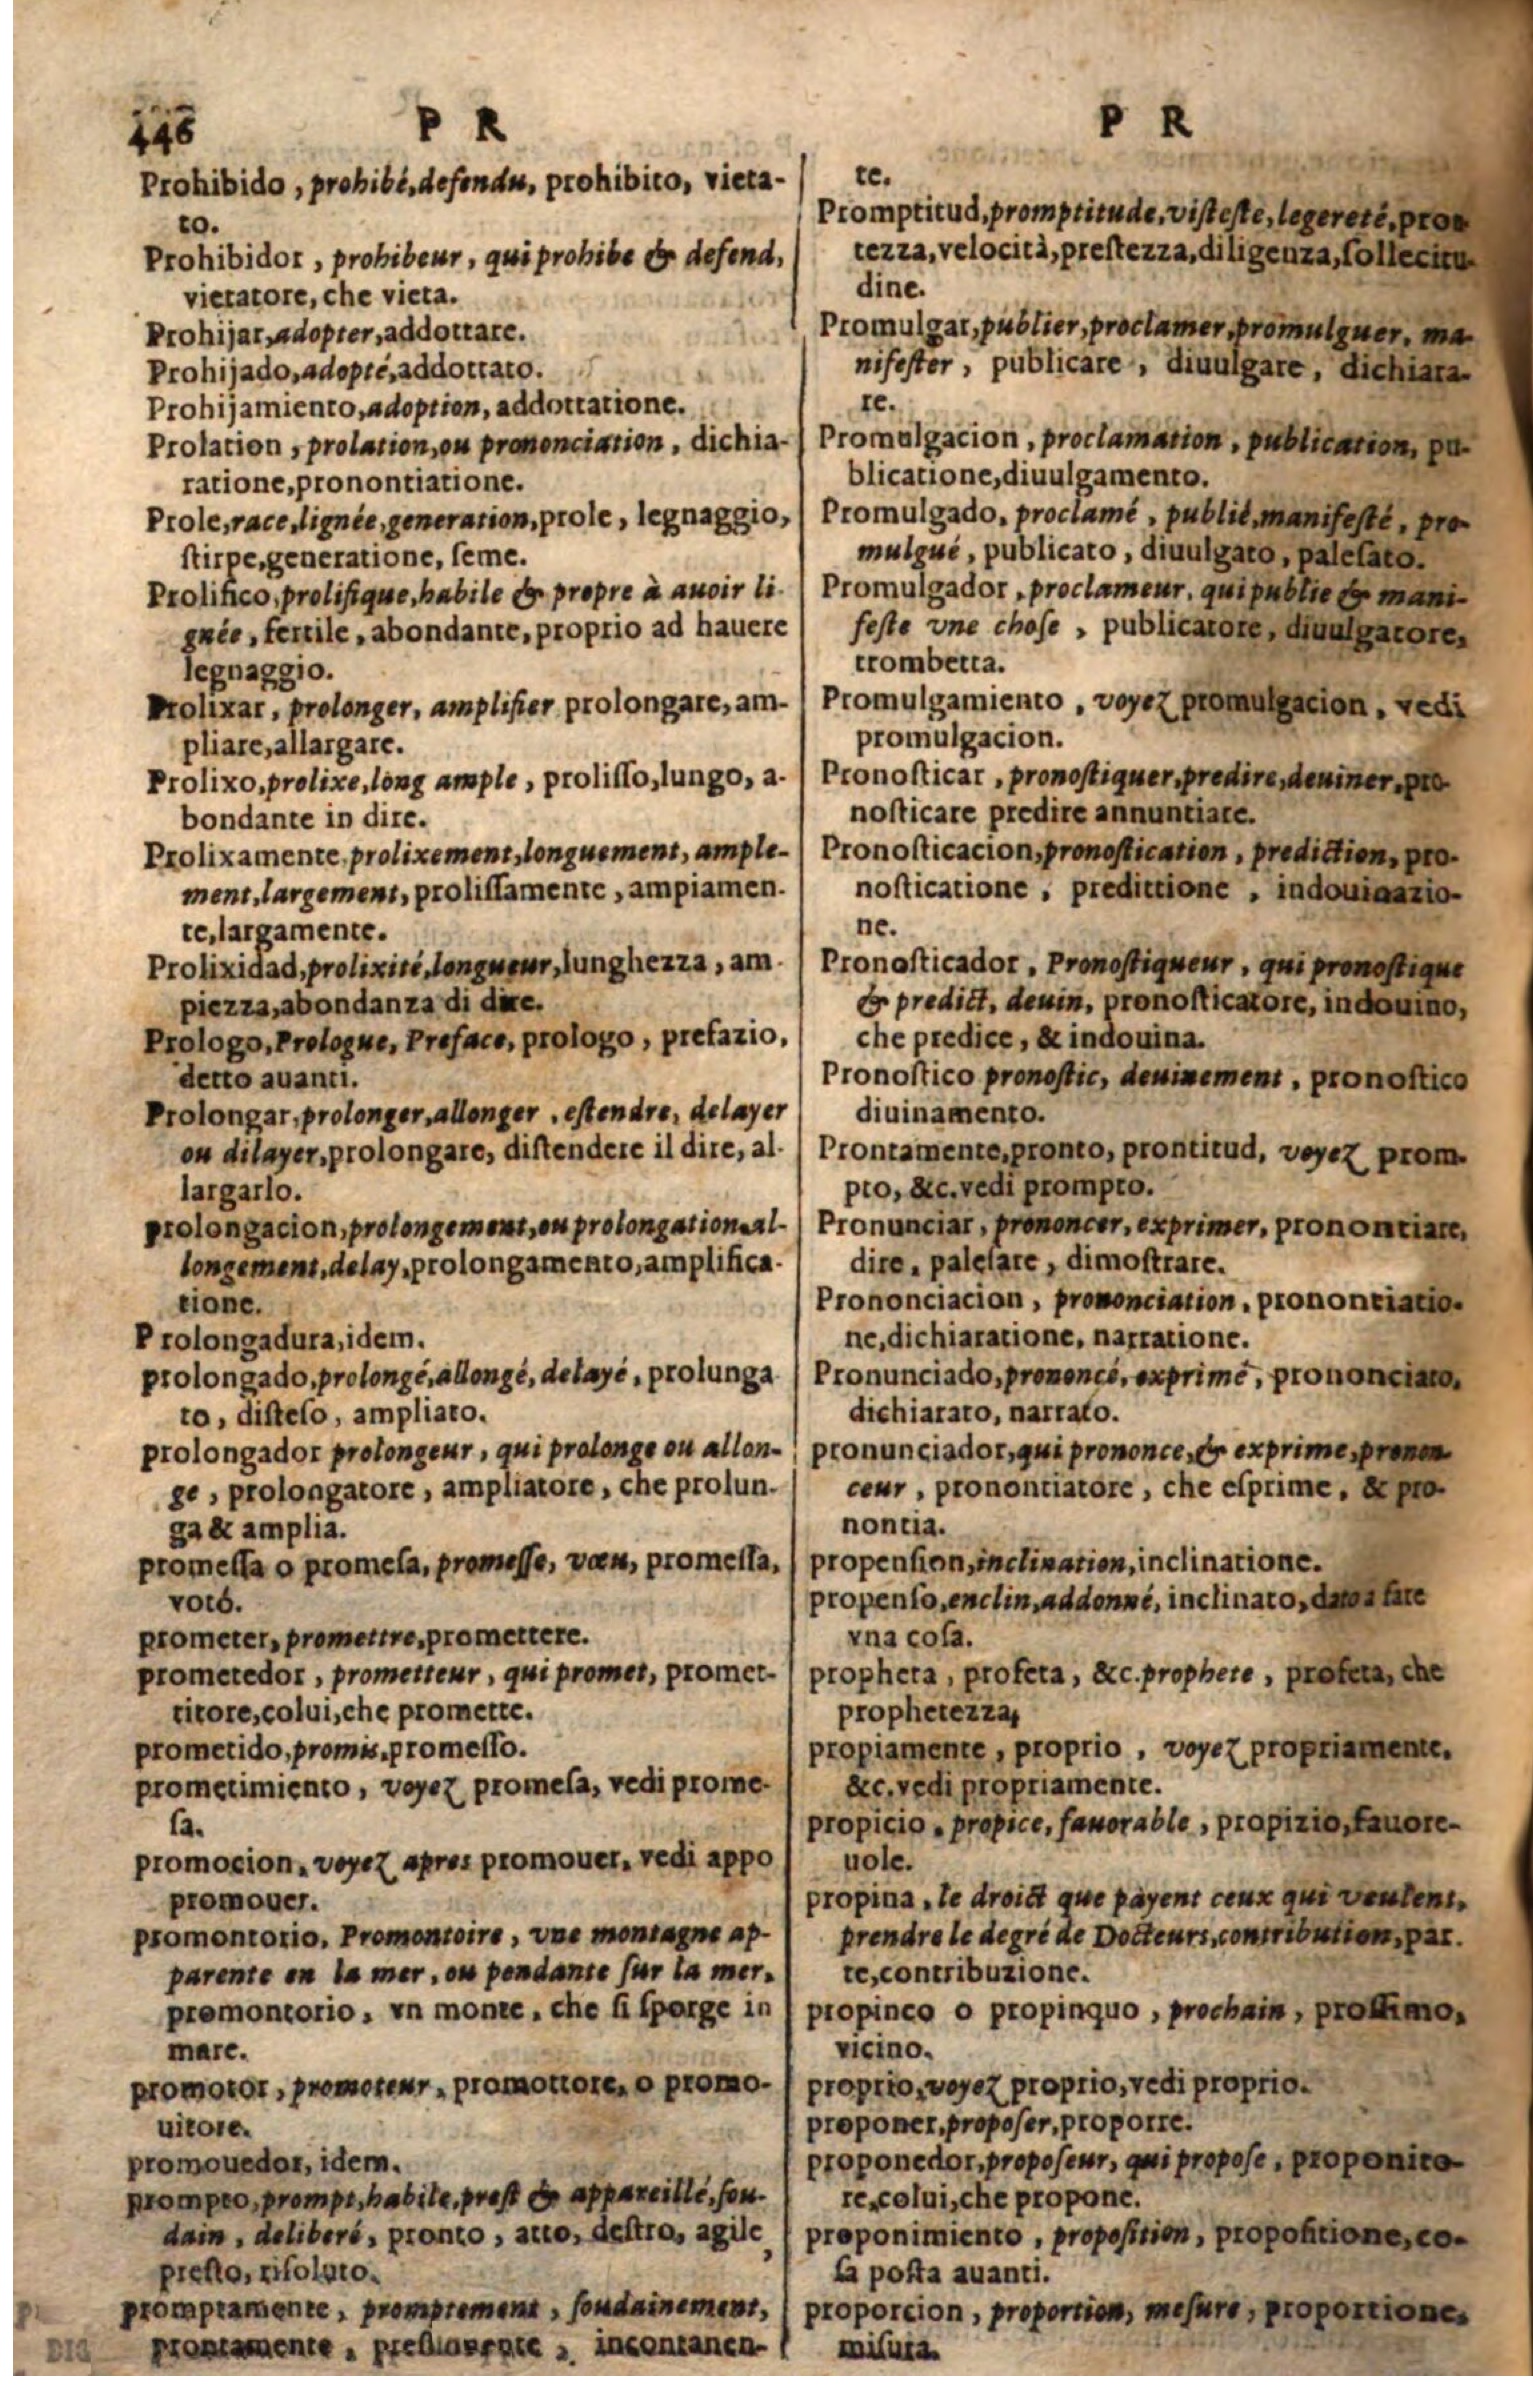 446 P R
Prohibido, prohibé, defendu, prohibito, vieta-
to.
Prohibidor, prohibeur, qui prohibe & defend,
vietatore, che vieta.
Prohijar, adopter, addottare.
Prohijado, adopté, addottato.
Prohijamiento, adoption, addottatione.
Prolation, prolation, ou prononciation, dichia-
ratione, pronontiatione.
Prole, race, lignée, generation, prole, legnaggio,
stirpe, generatione, seme.
Prolifico, prolifique, habile & propre à auoir li-
gnée, fertile, abondante, proprio ad hauere
legnaggio.
Prolixar, prolonger, amplifier prolongare, am-
pliare, allargare.
Prolixo, prolixe, long ample, prolisso, lungo, a-
bondante in dire.
Prolixamente, prolixement, longuement, ample-
ment, largement, prolissamente, ampiamen-
te, largamente.
Prolixidad, prolixité, longueur, lunghezza, am-
piezza, abondanza di dire.
Prologo, Prologue, Preface, prologo, prefazio,
detto auanti.
Prolongar, prolonger, allonger, estendre, delayer
ou dilayer, prolongare, distendere il dire, al-
largarlo.
prolongacion, prolongement, ou prolongation, al-
longement, delay, prolongamento, amplifica-
tione.
P rolongadura, idem.
prolongado, prolongé, allongé, delayé, prolunga
to, disteso, ampliato.
prolongador prolongeur, qui prolonge ou allon-
ge, prolongatore, ampliatore, che prolun-
ga & amplia.
promessa o promesa, promesse, vœu, promessa,
votó.
prometer, promettre, promettere.
prometedor, prometteur, qui promet, promet-
titore, colui, che promette.
prometido, promis, promesso.
prometimiento, voyez promesa, vedi prome-
sa.
promocion, voyez apres promouer, vedi appo
promouer.
promontorio, Promontoire, vne montagne ap-
parente en la mer, ou pendante sur la mer,
promontorio, vn monte, che si sporge in
mare.
promotor, promoteur, promottore, o promo-
uitore.
promouedor, idem.
prompto, prompt, habile, prest & appareillé, sou-
dain, deliberé, pronto, atto, destro, agile,
presto, risoluto.
promptamente, promptement, soudainement,
prontamente, prestamente, incontanen-
P R
te.
Promptitud, promptitude, vistesse, legereté, pron-
tezza, velocità, prestezza, diligenza, sollecitu-
dine.
Promulgar, publier, proclamer, promulguer, ma-
nifester, publicare, diuulgare, dichiara-
re.
Promulgacion, proclamation, publication, pu-
blicatione, diuulgamento.
Promulgado, proclamé, publié, manifesté, pro-
mulgué, publicato, diuulgato, palesato.
Promulgador, proclameur, qui publie & mani-
feste vne chose, publicatore, diuulgatore,
trombetta.
Promulgamiento, voyez promulgacion, vedi
promulgacion.
Pronosticar, pronostiquer, predire, deuiner, pro-
nosticare predire annuntiare.
Pronosticacion, pronostication, prediction, pro-
nosticatione, predittione, indouinazio-
ne.
Pronosticador, Pronostiqueur, qui pronostique
& predict, deuin, pronosticatore, indouino,
che predice, & indouina.
Pronostico pronostic, deuinement, pronostico
diuinamento.
Prontamente, pronto, prontitud, voyez prom-
pto, &c. vedi prompto.
Pronunciar, prononcer, exprimer, pronontiare,
dire, palesare, dimostrare.
Prononciacion, prononciation, pronontiatio-
ne, dichiaratione, narratione.
Pronunciado, prononcé, exprimé, prononciato,
dichiarato, narrato.
pronunciador, qui prononce, & exprime, pronon-
ceur, pronontiatore, che esprime, & pro-
nontia.
propension, inclination, inclinatione.
propenso, enclin, addonné, inclinato, dato à fare
vna cosa.
propheta, profeta, &c. prophete, profeta, che
prophetezza,
propiamente, proprio, voyez propriamente,
&c. vedi propriamente.
propicio, propice, fauorable, propizio, fauore-
uole.
propina, le droict que payent ceux qui veulent,
prendre le degré de Docteurs, contribution, par-
te, contribuzione.
propinco o propinquo, prochain, prossimo,
vicino.
proprio, voyez proprio, vedi proprio.
proponer, proposer, proporre.
proponedor, proposeur, qui propose, proponito-
re, colui, che propone.
proponimiento, proposition, propositione, co-
sa posta auanti.
proporcion, proportion, mesure, proportione,
misura.